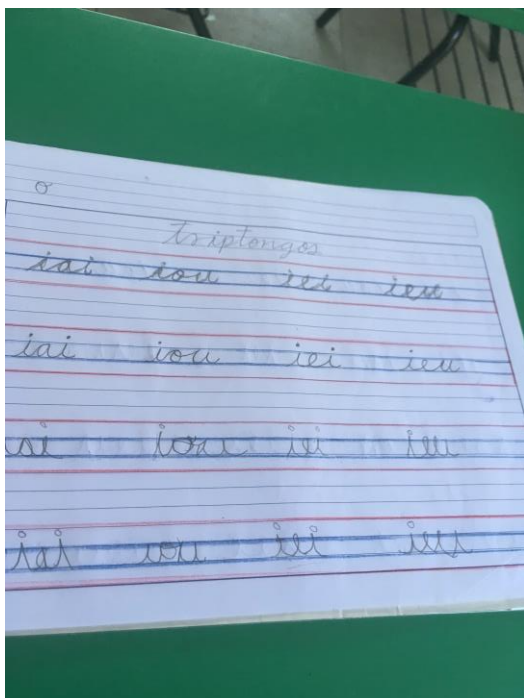 o
triptongos
iai iou iei ieu
iai iou iei ieu
iai iou iei ieu
iai iou iei ieu